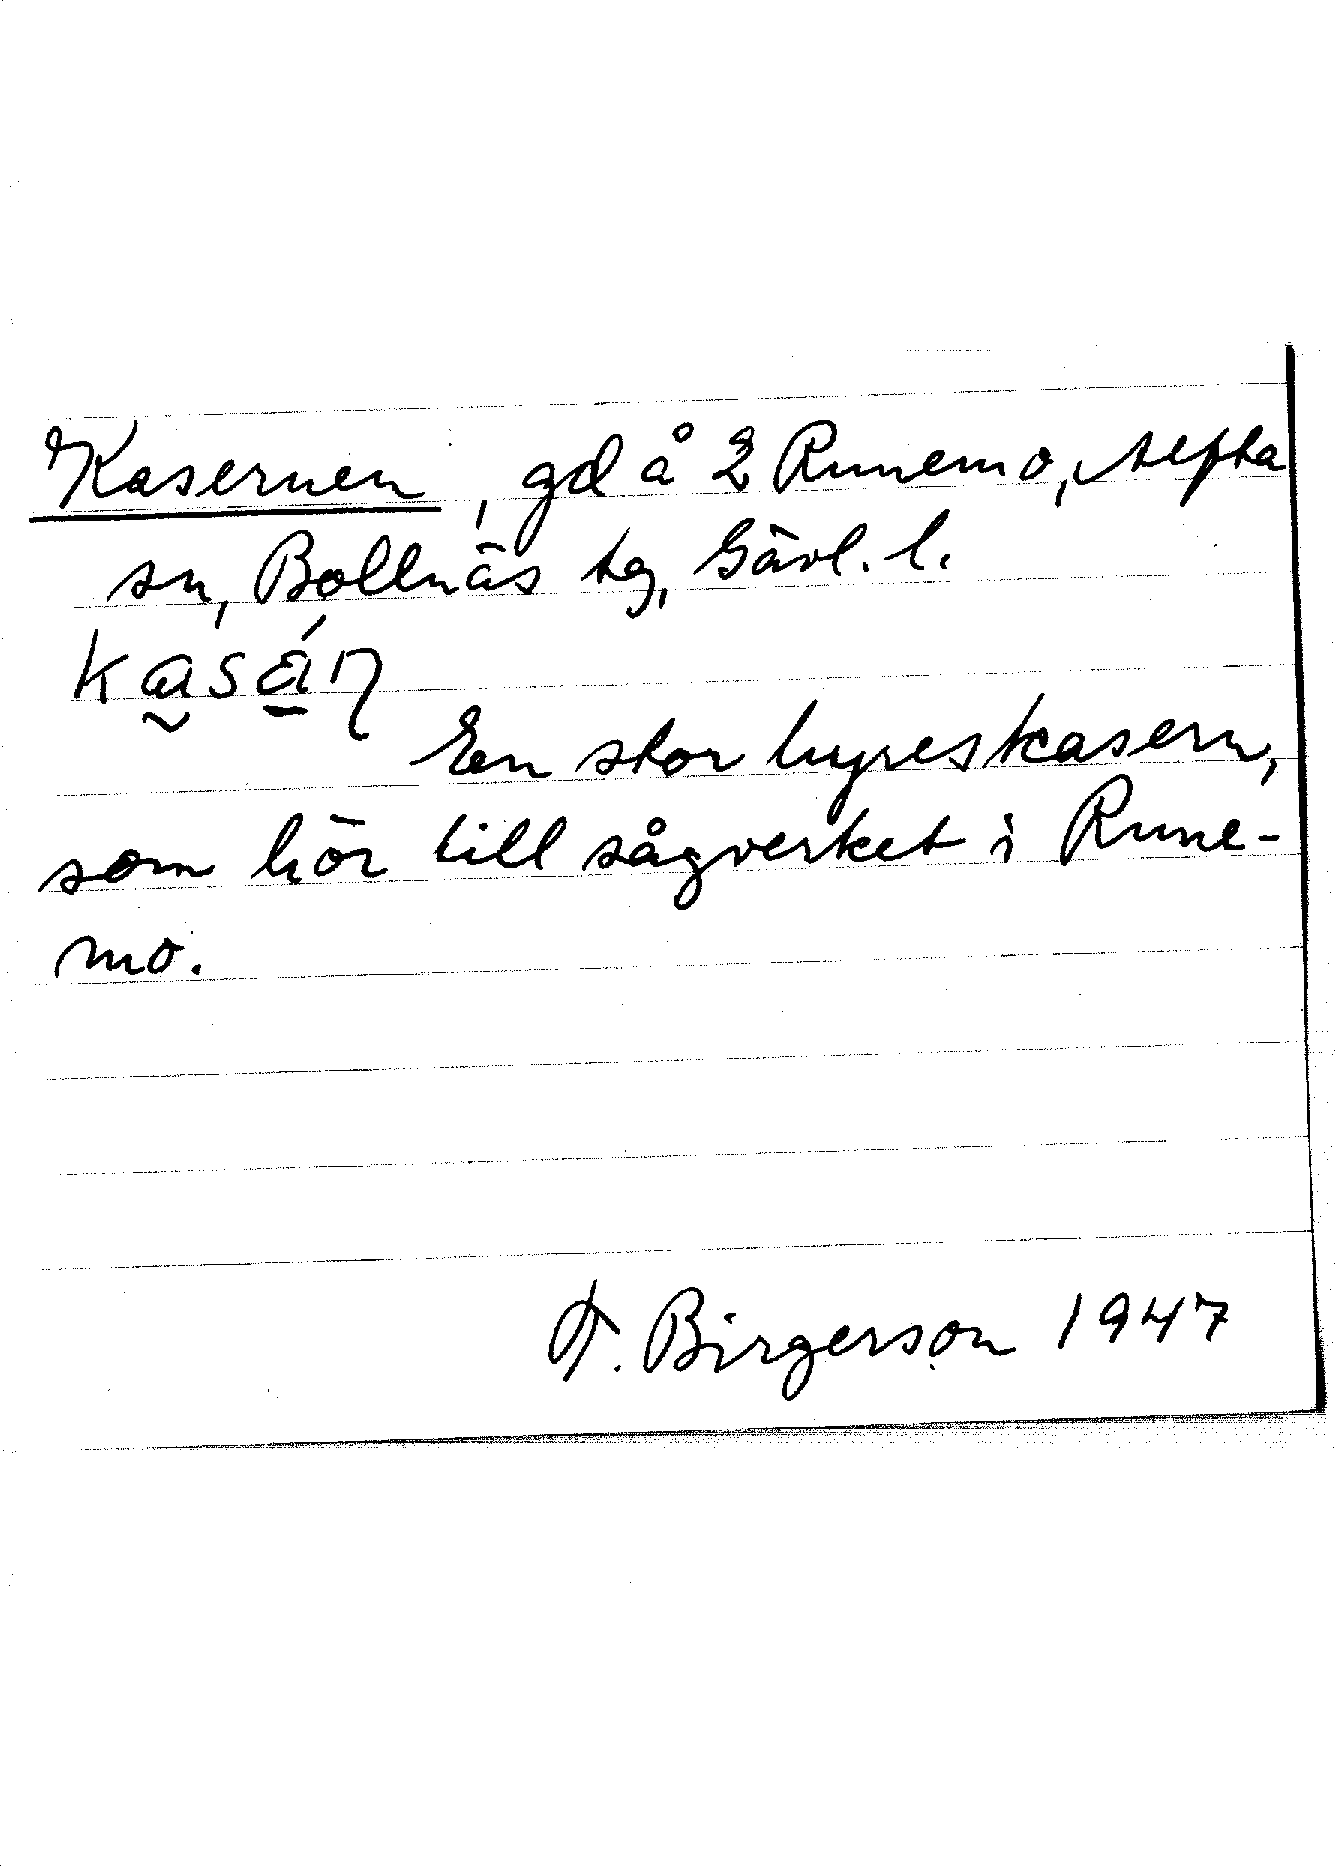 Kasernen, gd å 2 Runemo, Alfta
sn, Bollnäs tg, Gävl. l.
kasán
En stor hyreskasern,
som hör till sågverket i Rune-
mo.
F. Birgerson 1947